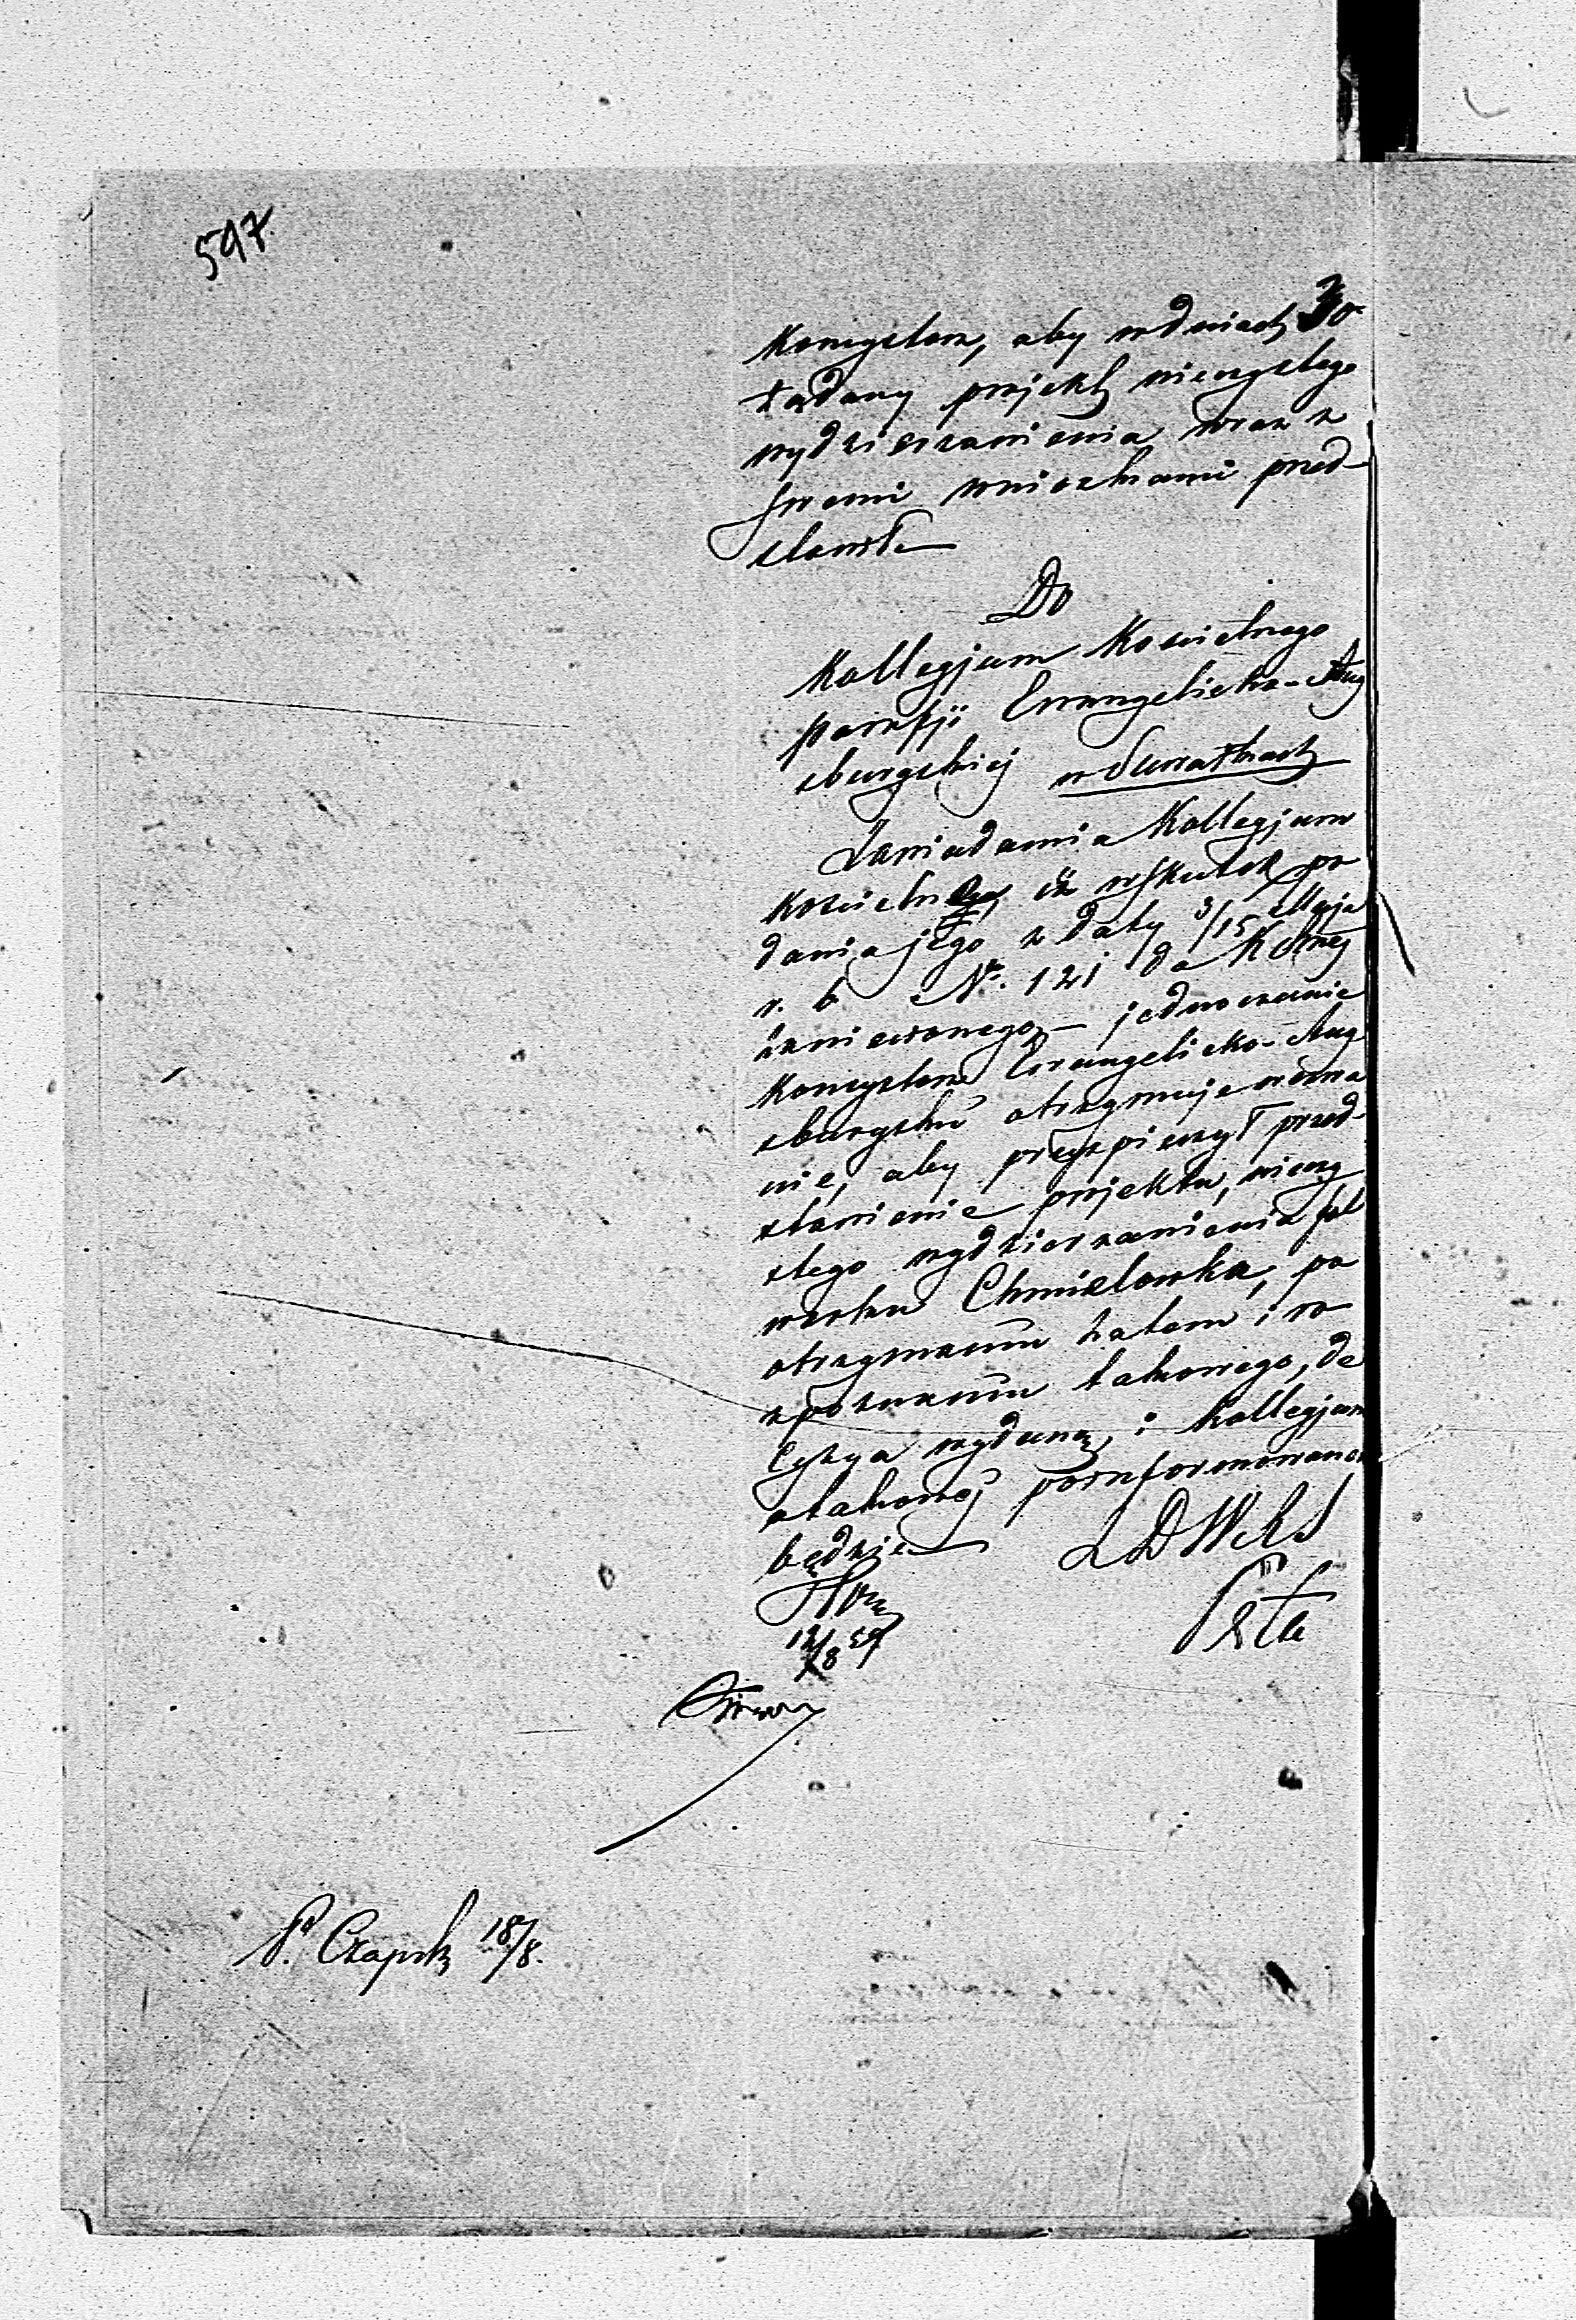 597.
Konsystorz, aby w dniach 30
żądany projekt wieczystego
wydzierzawienia wraz z
swemi wnioskami przed-
stawił
Do
Kollegjum Koscielnego
parafji Ewangelicko-Aug
sburgskiej w Suwałkach
Zawiadamia Kollegjum
Koscielne, iż wskutek po
dania jego z daty 3/15 Maja
r. b. No. 121 do
zaniesionego jednocześnie
Konsystorz Ewangelicko-Aug
sburgski otrzymuje wezwa
nie, aby przyspieszył przed-
stawienie projektu, wieczy
stego wydzierzawienia fol
warku Chmielowka, po
otrzymaniu zatem i ro
zpoznaniu takowego, de
cyzya wydaną, i Kollegjum
o takowej poinformowane
będzie
12/8 59
P. Czapsk 18/8.